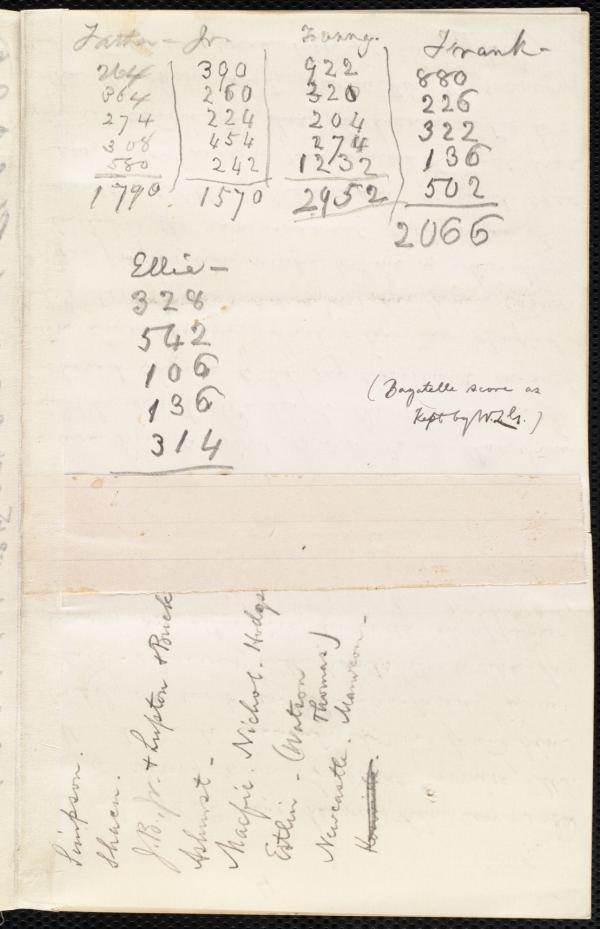 Father - Jr. Fanny. Frank -
264 390 922 880
364 260 320 226
274 224 204 322
308 454 274 136
580 242 1232 502
1790 1570 2952 2066
Ellie -
328
542
106
136
314
(Bagatelle score as
Kept by W.L.G.)
Simpson.
Shaen.
J.B., Jr. + Lupton + Buck
Ashurst -
Macfie. Nichol. Hodgs
Estlin - (Watson
Thomas)
Newcastle. Mawson -